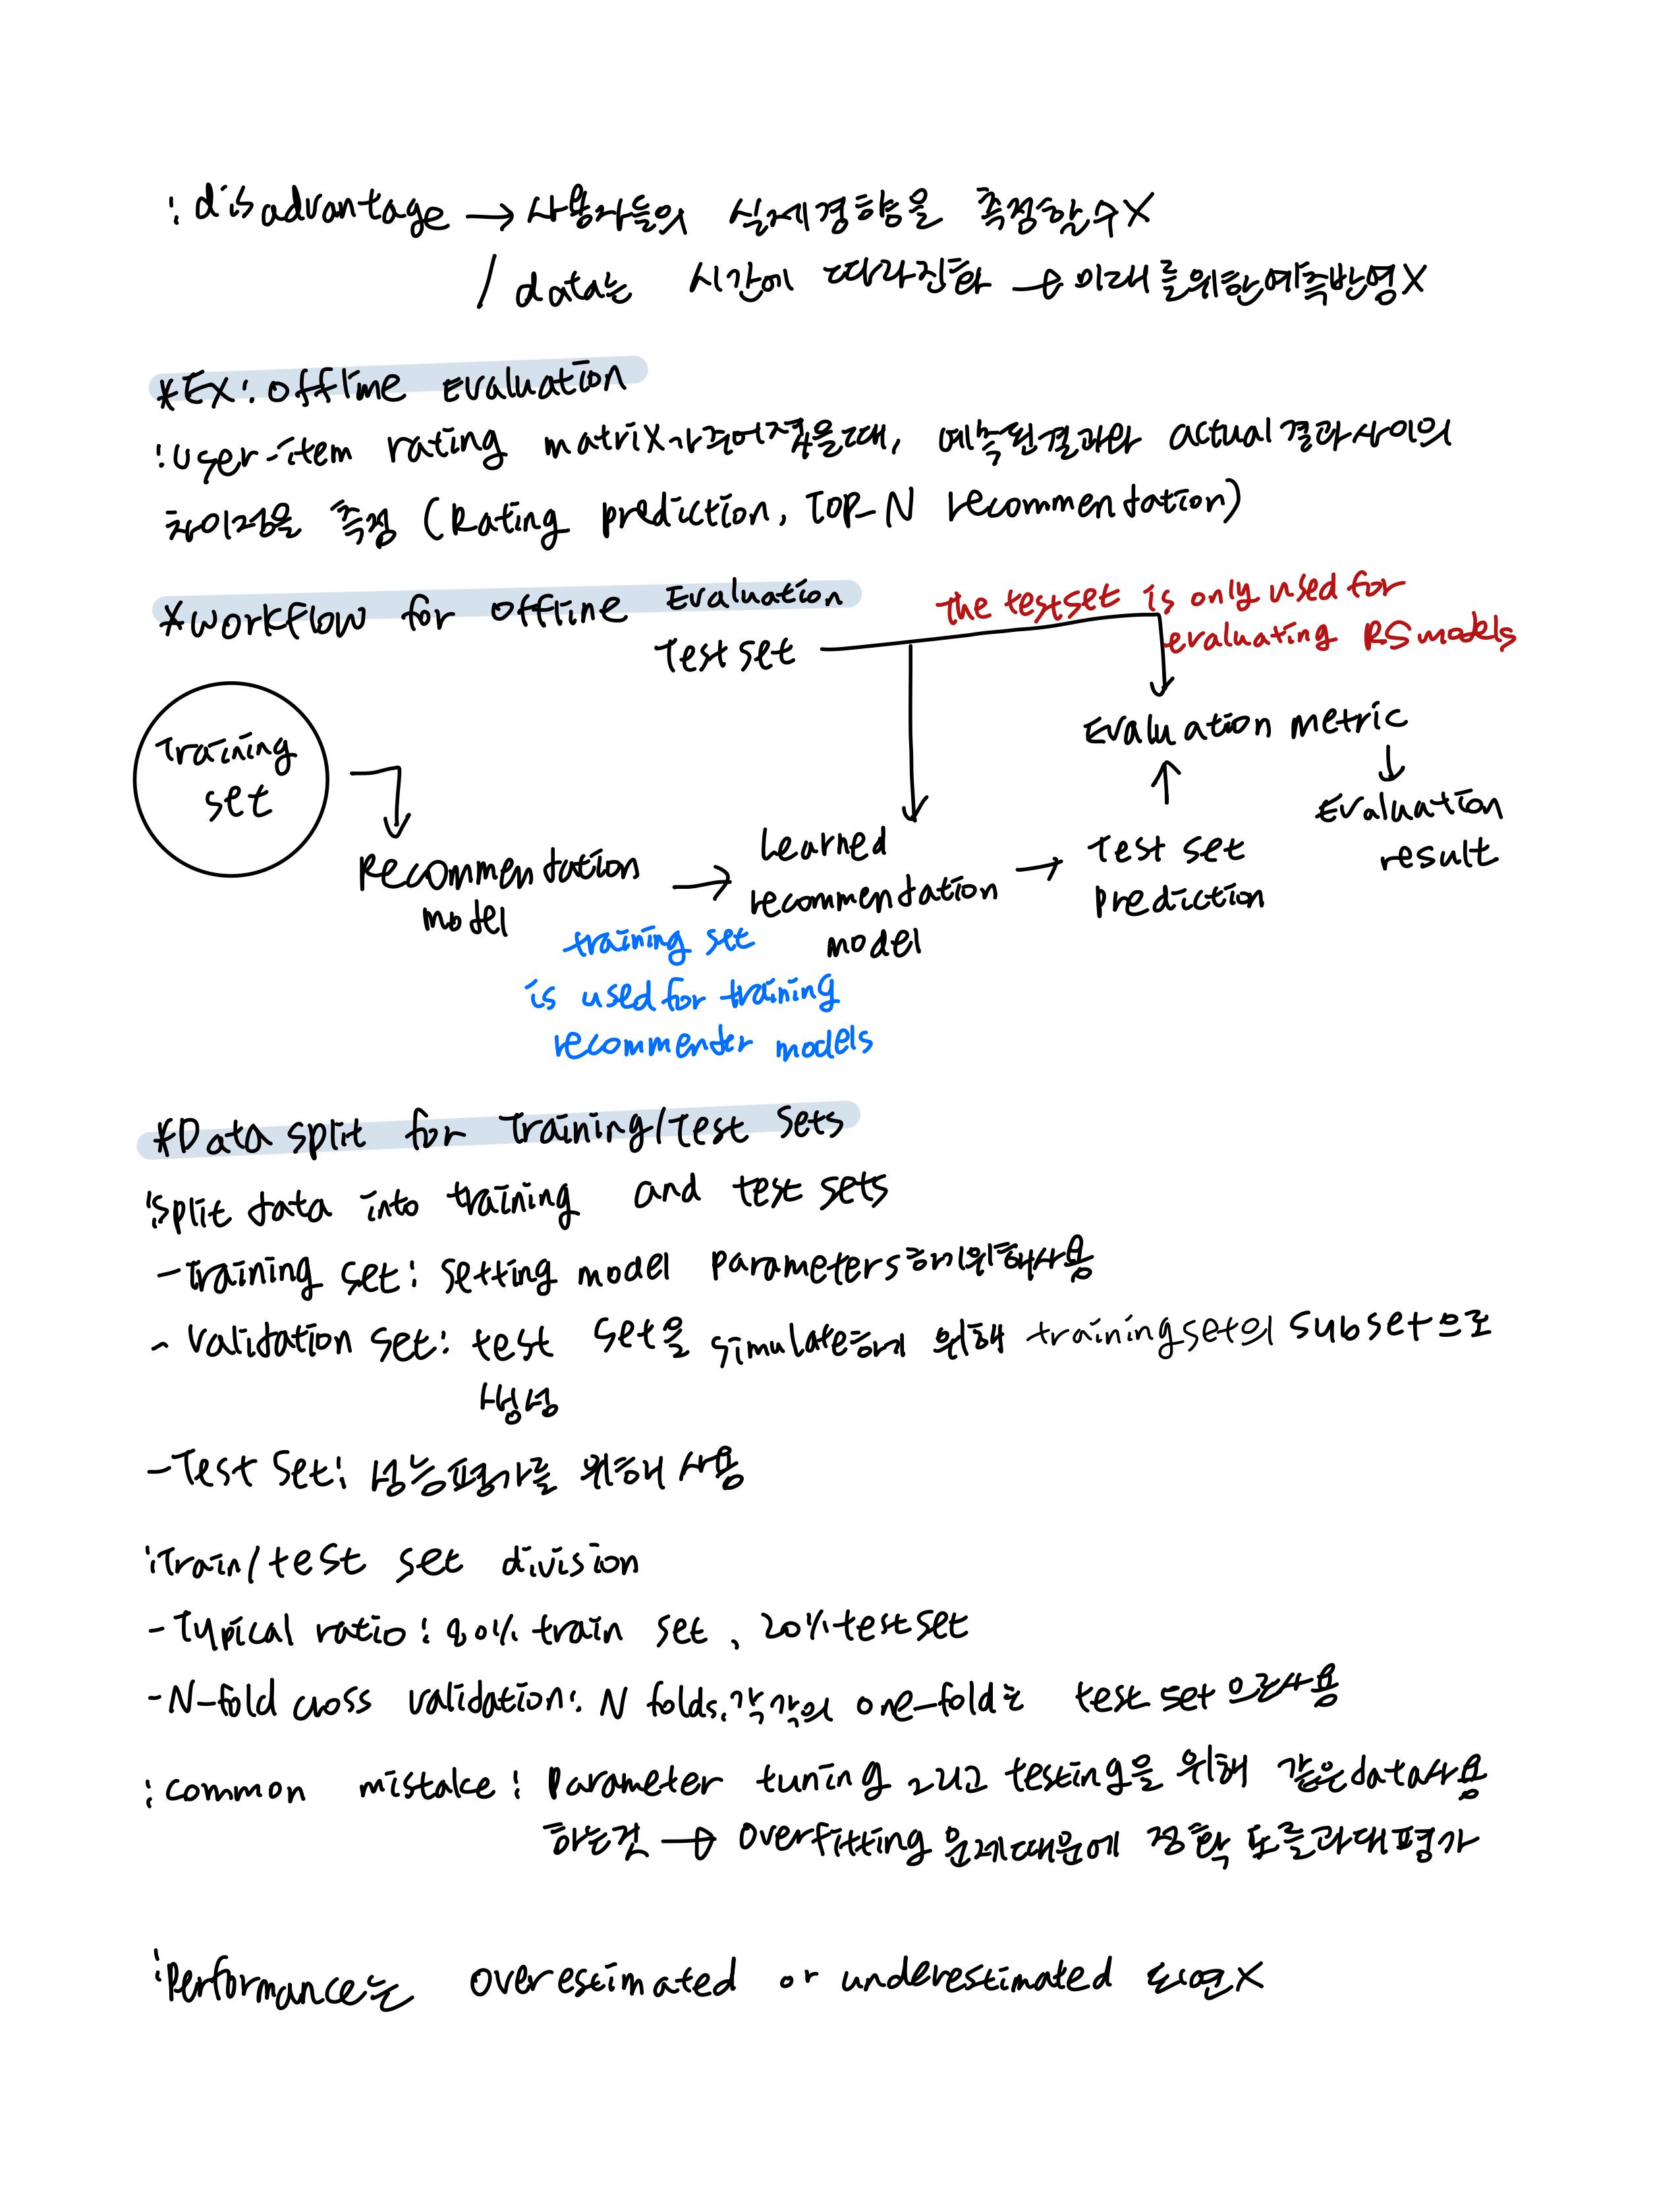 : disadvantage → 사용자들의 실제경향을 측정할수X
/ data는 시간에 따라진화 → 미래를위한예측반영X
*EX: offline Evaluation
: user-item rating matrix가주어졌을때, 예측된결과와 actual결과사이의
차이점을 측정 (Rating prediction, TOP-N recommendation)
*workflow for offline Evaluation
the testset is only used for
evaluating RS models
Test set
Training
set
Evaluation metric
Evaluation
result
Recommendation
model
Learned
recommendation
model
Test set
prediction
training set
is used for training
recommender models
*Data split for Training/Test Sets
: split data into training and test sets
- Training set: setting model parameters하기위해사용
- Validation set: test set을 simulate하기 위해 training set의 subset으로
생성
- Test Set: 성능평가를 위해 사용
: Train/test set division
- Typical ratio: 80% train set, 20% test set
- N-fold cross validation: N folds, 각각의 one-fold는 test set 으로사용
: common mistake: parameter tuning 그리고 testing을 위해 같은data사용
하는것 → overfitting 문제때문에 정확도를과대평가
: Performance는 overestimated or underestimated 되면X